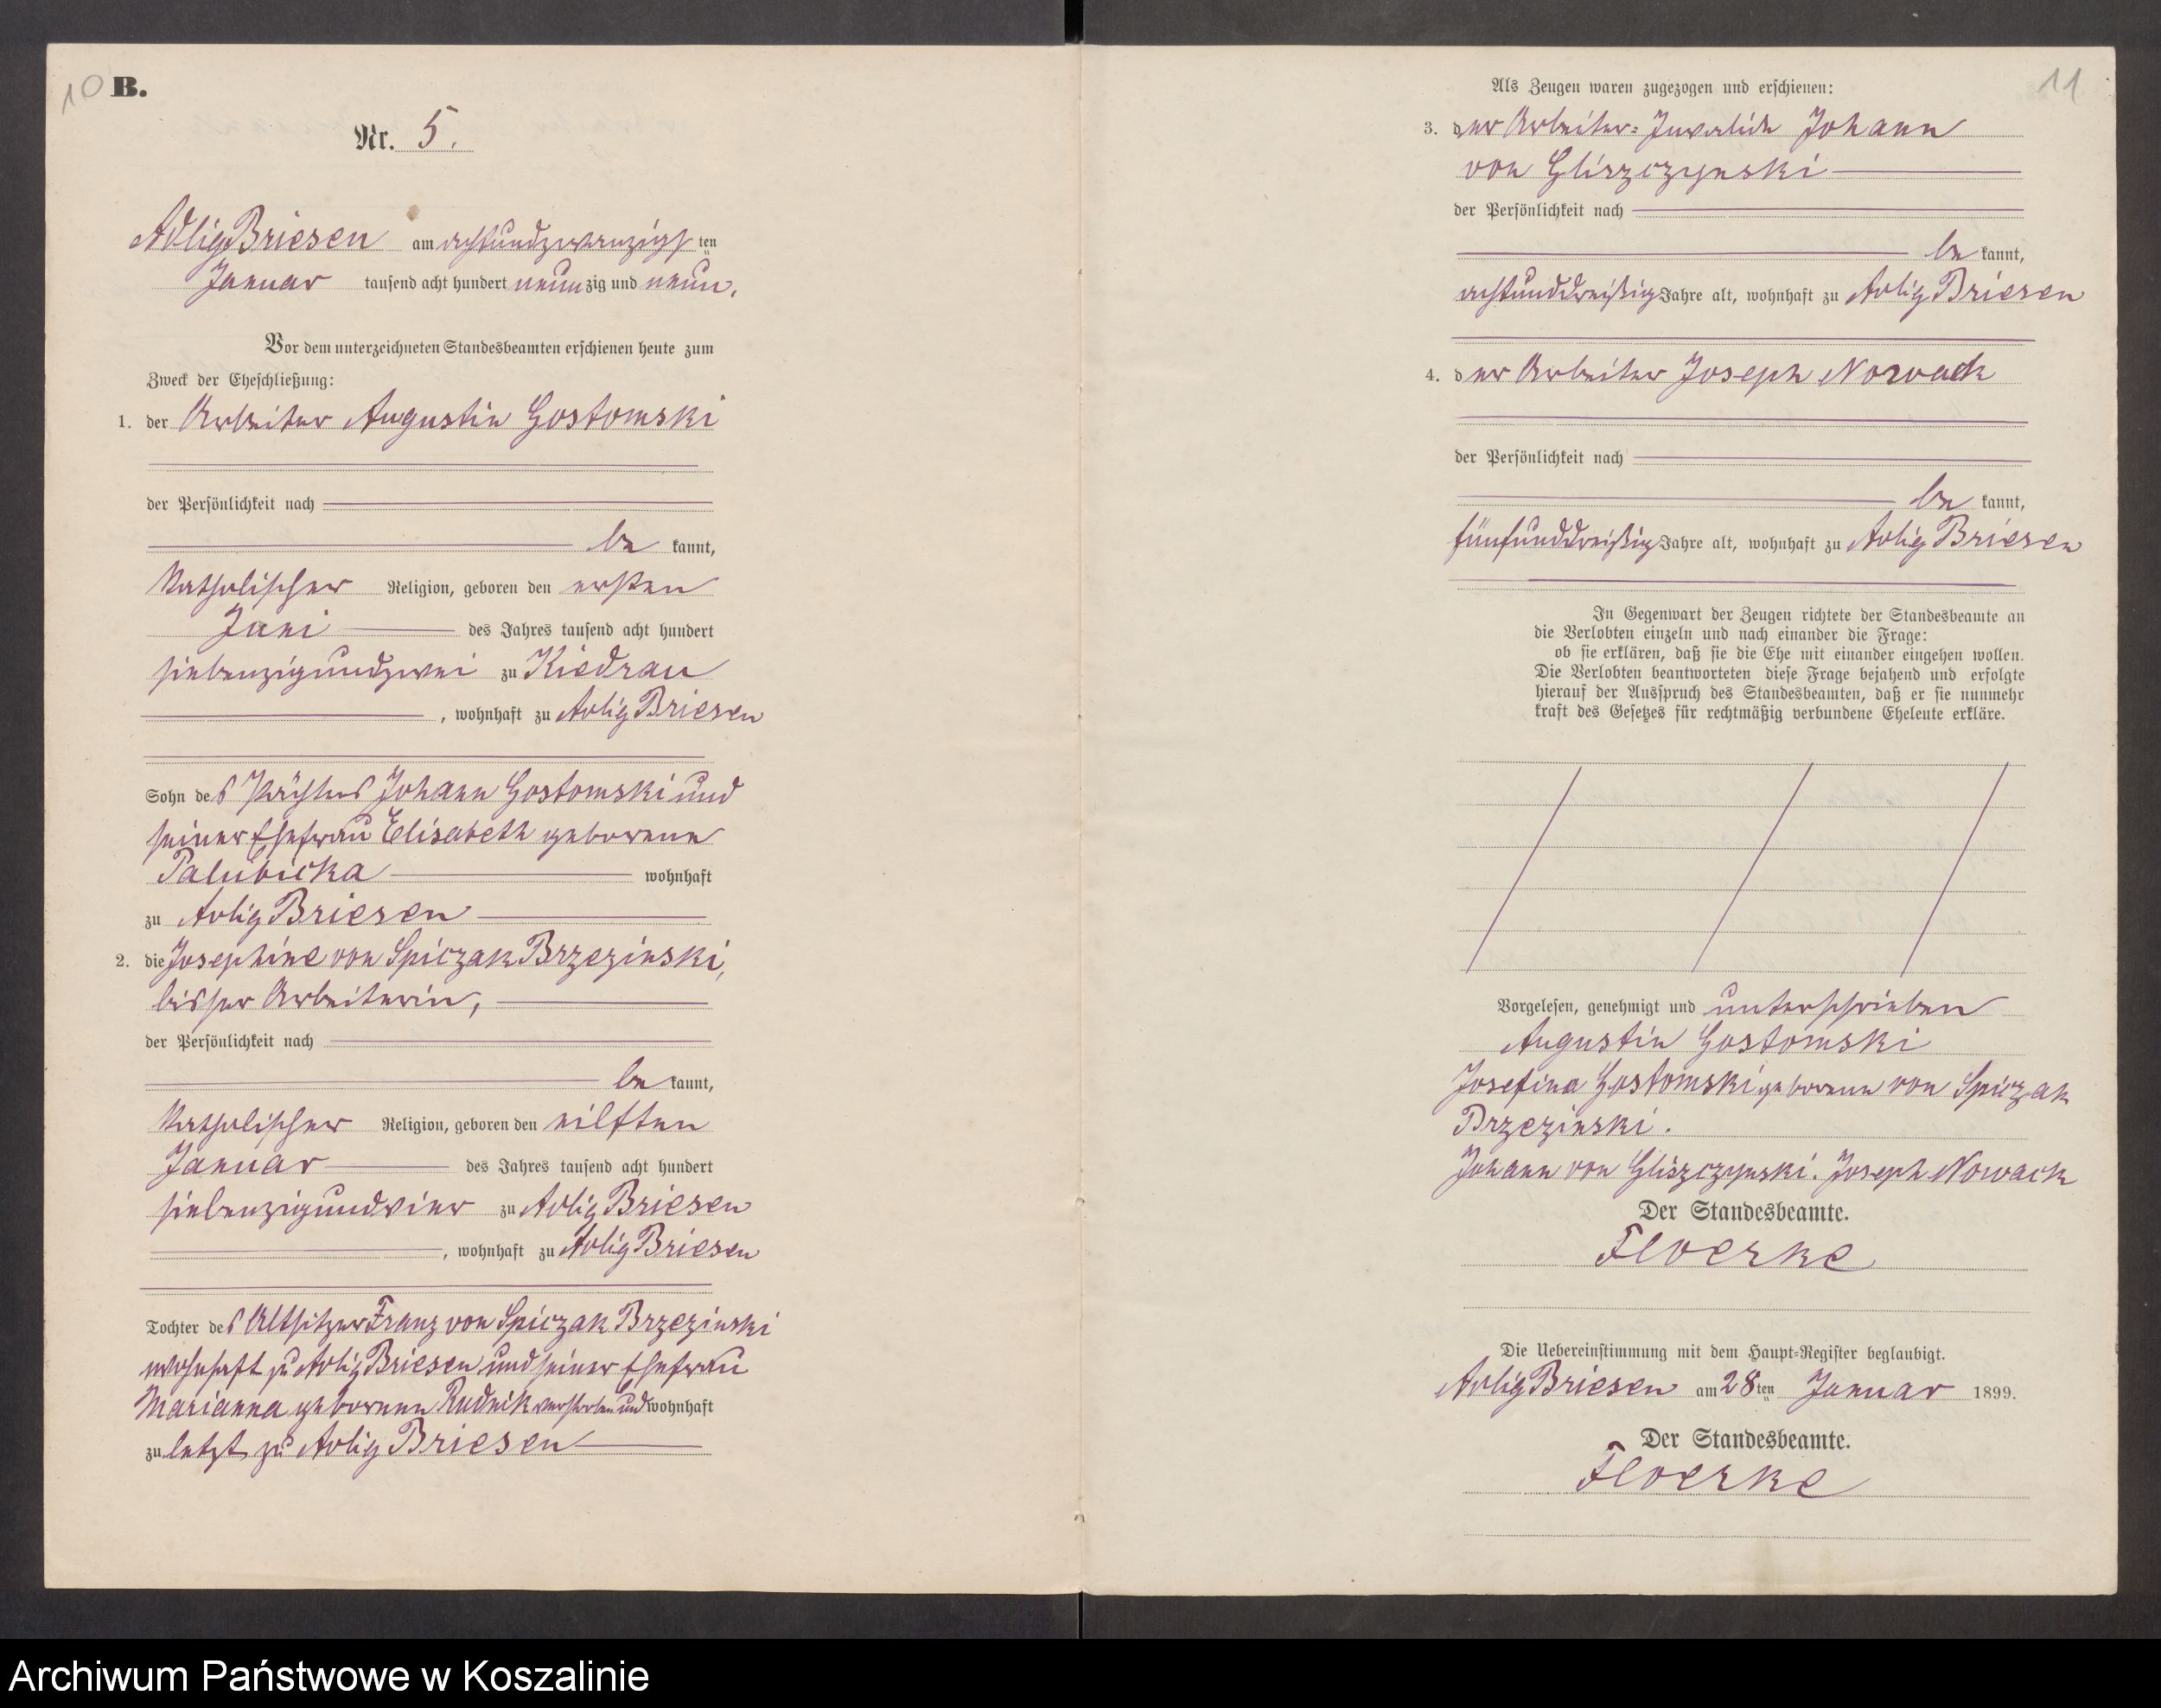 10 B.
Nr. 5.
Adlig Briesen am achtundzwanzigsten
Januar tausend acht hundert neunzig und neun.
Vor dem unterzeichneten Standesbeamten erschienen heute zum
Zweck der Eheschließung:
1. der Arbeiter Augustin Gostomski
der Persönlichkeit nach
bekannt,
katholischer Religion, geboren den ersten
Juni des Jahres tausend acht hundert
siebenzigundzwei zu Kiedrau
, wohnhaft zu Adlig Briesen
Sohn des Pächters Johann Gostomski und
seiner Ehefrau Elisabeth geborene
Palubicka wohnhaft
zu Adlig Briesen
2. die Josephine von Spiczak Brzezinski,
bisher Arbeiterin,
der Persönlichkeit nach
bekannt,
katholischer Religion, geboren den eilften
Januar des Jahres tausend acht hundert
siebenzigundvier zu Adlig Briesen
, wohnhaft zu Adlig Briesen
Tochter des Altsitzer Franz von Spiczak Brzezinski
wohnhaft zu Adlig Briesen und seiner Ehefrau
Marianna geborenen Rudnik verstorben und wohnhaft
zuletzt zu Adlig Briesen
11
Als Zeugen waren zugezogen und erschienen:
3. der Arbeiter= Johann
von Gliszczynski
der Persönlichkeit nach
bekannt,
achtunddreißig Jahre alt, wohnhaft zu Adlig Briesen
4. der Arbeiter Joseph Nowack
der Persönlichkeit nach
bekannt,
fünfunddreißig Jahre alt, wohnhaft zu Adlig Briesen
In Gegenwart der Zeugen richtete der Standesbeamte an
die Verlobten einzeln und nach einander die Frage:
ob sie erklären, daß sie die Ehe mit einander eingehen wollen.
Die Verlobten beantworteten diese Frage bejahend und erfolgte
hierauf der Ausspruch des Standesbeamten, daß er sie nunmehr
kraft des Gesetzes für rechtmäßig verbundene Eheleute erkläre.
Vorgelesen, genehmigt und unterschrieben
Augustin Gostomski
Josefina Gostomski geborene von Spiczak
Brzezinski.
Johann von Gliszczynski. Joseph Nowack
Der Standesbeamte.
Floerke
Die Uebereinstimmung mit dem Haupt=Register beglaubigt.
Adlig Briesen am 28ten Januar 1899.
Der Standesbeamte.
Floerke
Archiwum Państwowe w Koszalinie